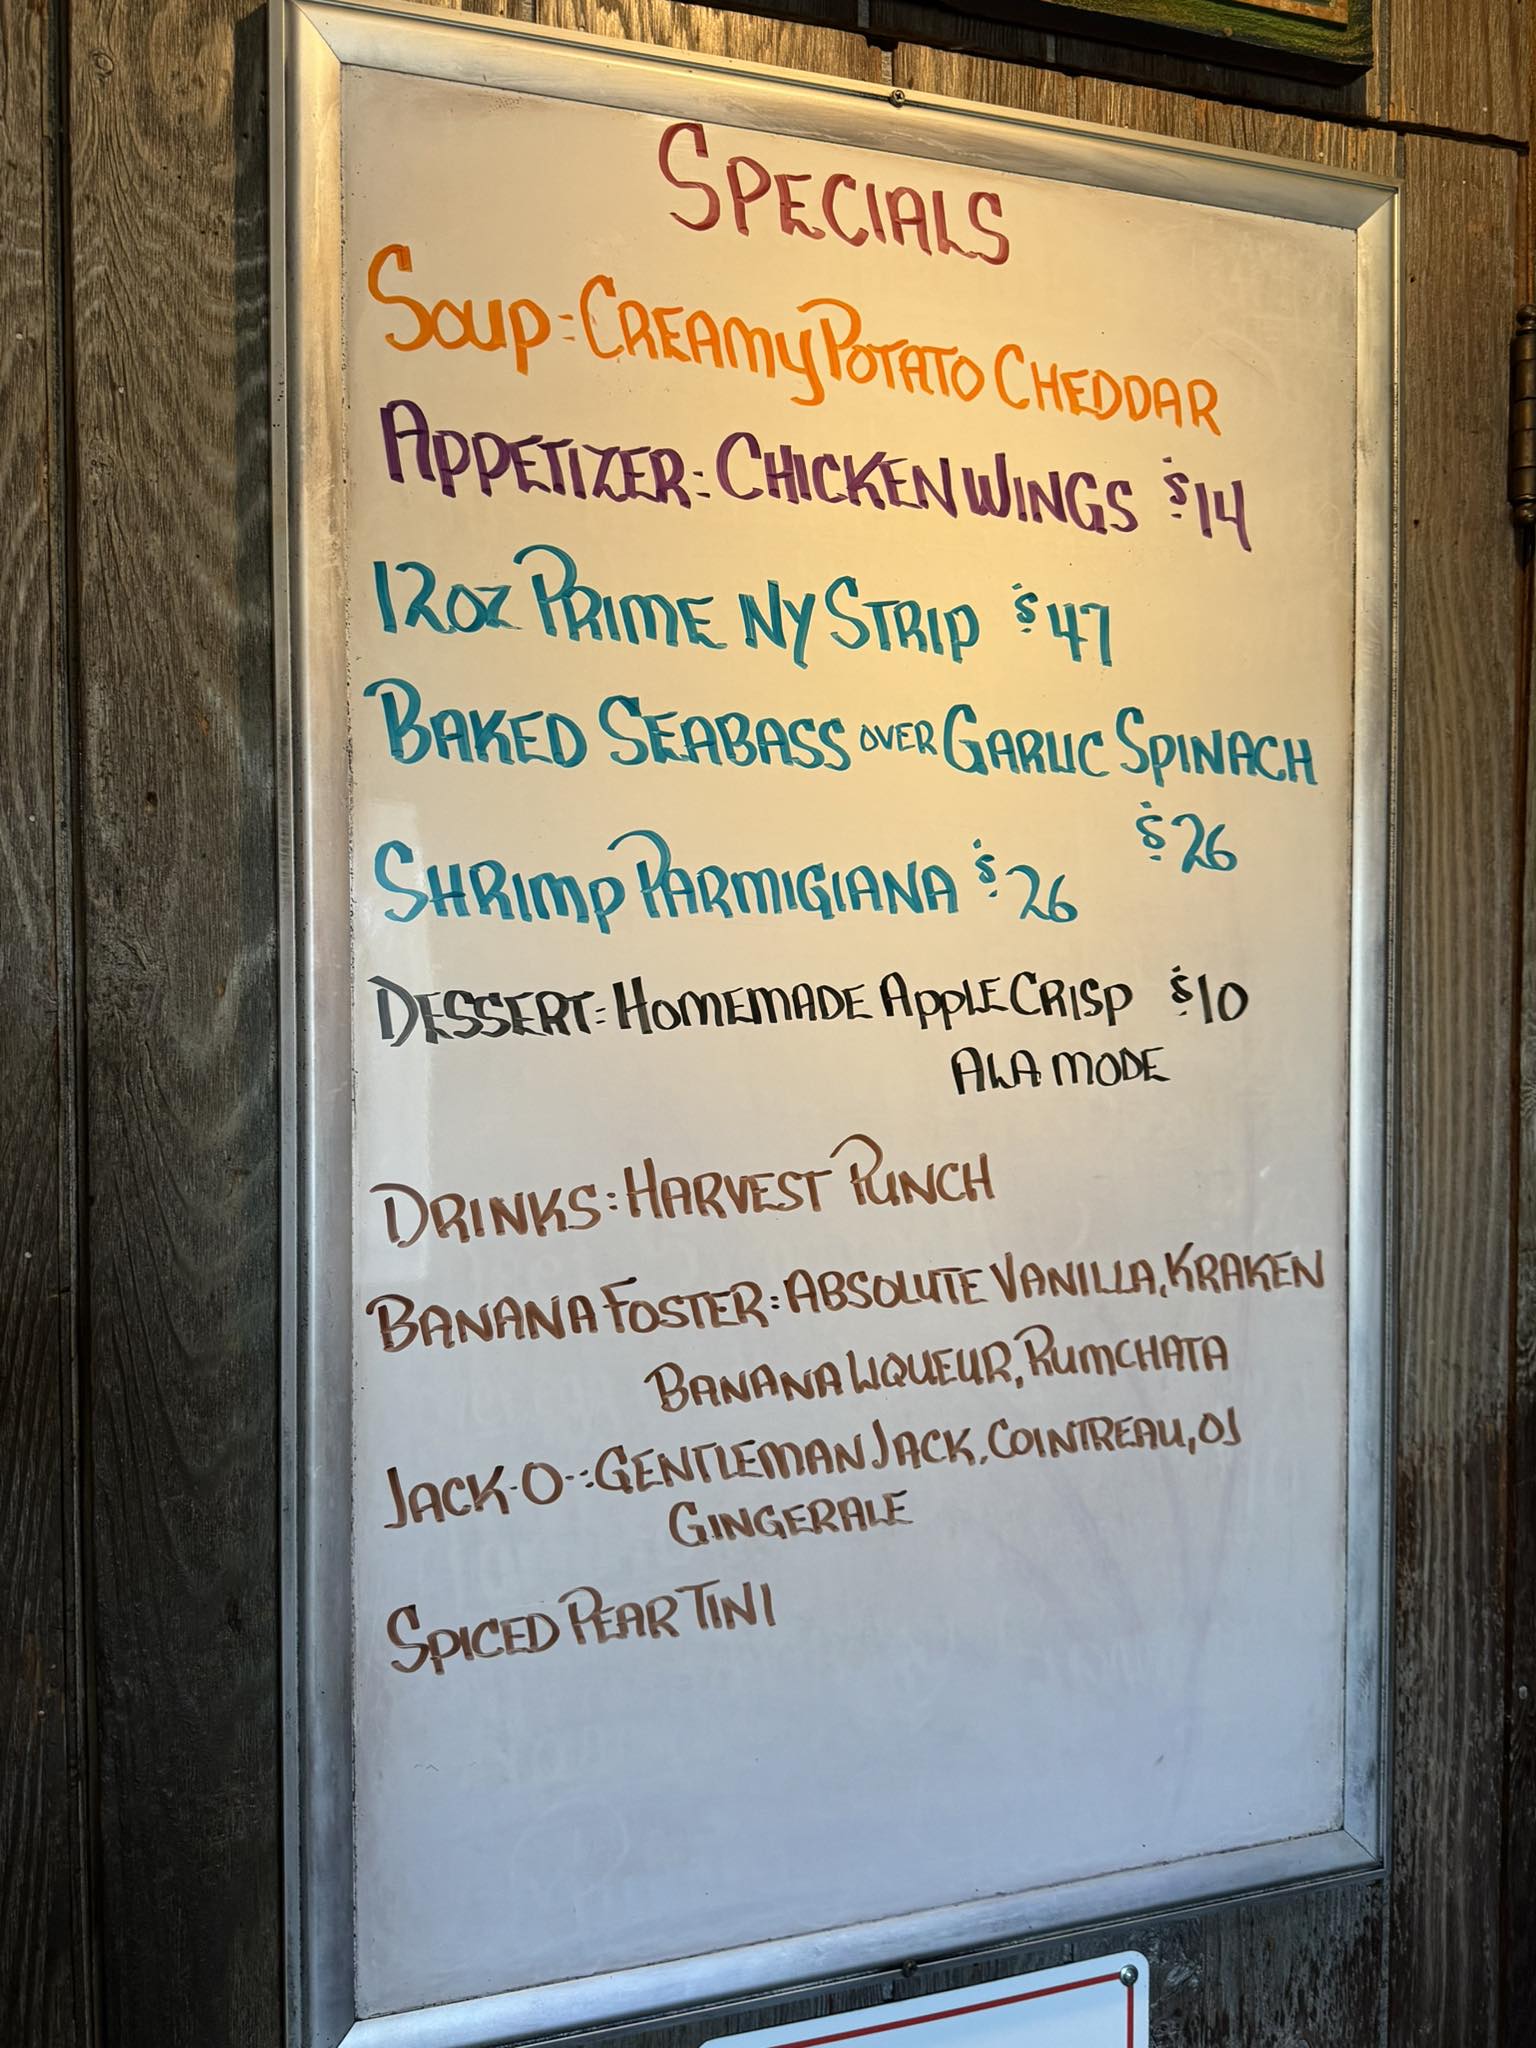 SPECIALS
SOUP: CREAMY POTATO CHEDDAR
APPETIZER: CHICKEN WINGS $14
12OZ PRIME NY STRIP $47
BAKED SEABASS OVER GARLIC SPINACH
$26
SHRIMP PARMIGIANA $26
DESSERT: HOMEMADE APPLE CRISP $10
ALA MODE
DRINKS: HARVEST PUNCH
BANANA FOSTER: ABSOLUTE VANILLA, KRAKEN
BANANA LIQUEUR, RUMCHATA
JACK-O-: GENTLEMAN JACK, COINTREAU, OJ
GINGERALE
SPICED PEAR TINI